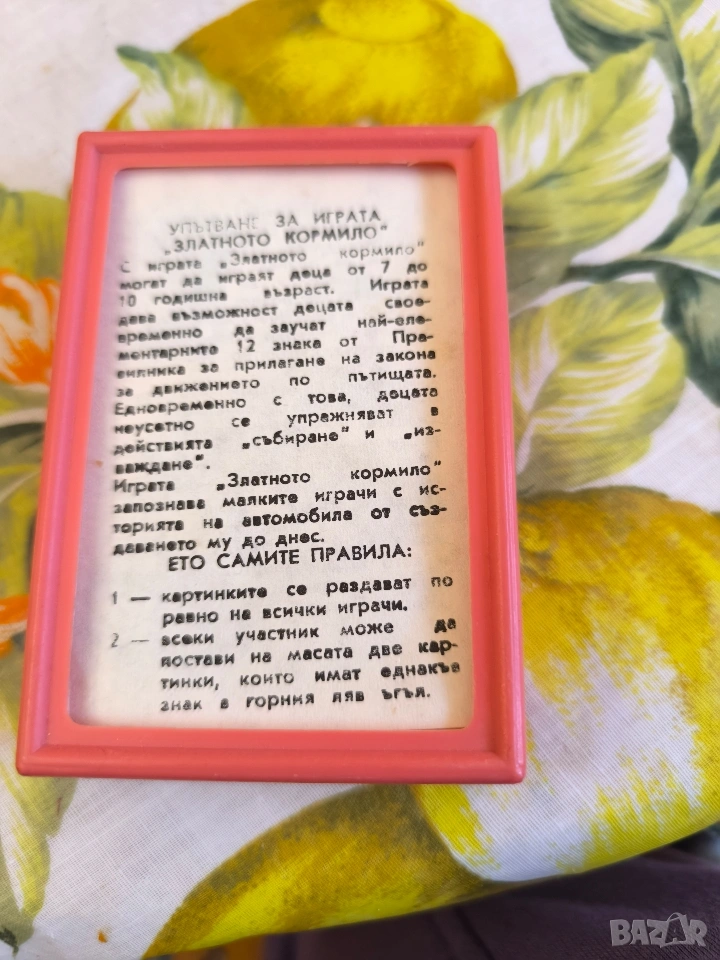 УПЪТВАНЕ ЗА ИГРАТА
„ЗЛАТНОТО КОРМИЛО"
С играта „Златното кормило"
могат да играят деца от 7 до
10 годишна възраст. Играта
дава възможност децата свое-
временно да заучат най-еле-
ментарните 12 знака от Пра-
вилника за прилагане на закона
за движението по пътищата.
Едновременно с това, децата
неусетно се упражняват в
действията „събиране" и „из-
важдане".
Играта „Златното кормило"
запознава малките играчи с ис-
торията на автомобила от съз-
даването му до днес.
ЕТО САМИТЕ ПРАВИЛА:
1 — картинките се раздават по
равно на всички играчи.
2 — всеки участник може да
постави на масата две кар-
тинки, които имат еднакъв
знак в горния ляв ъгъл.
BAZAR